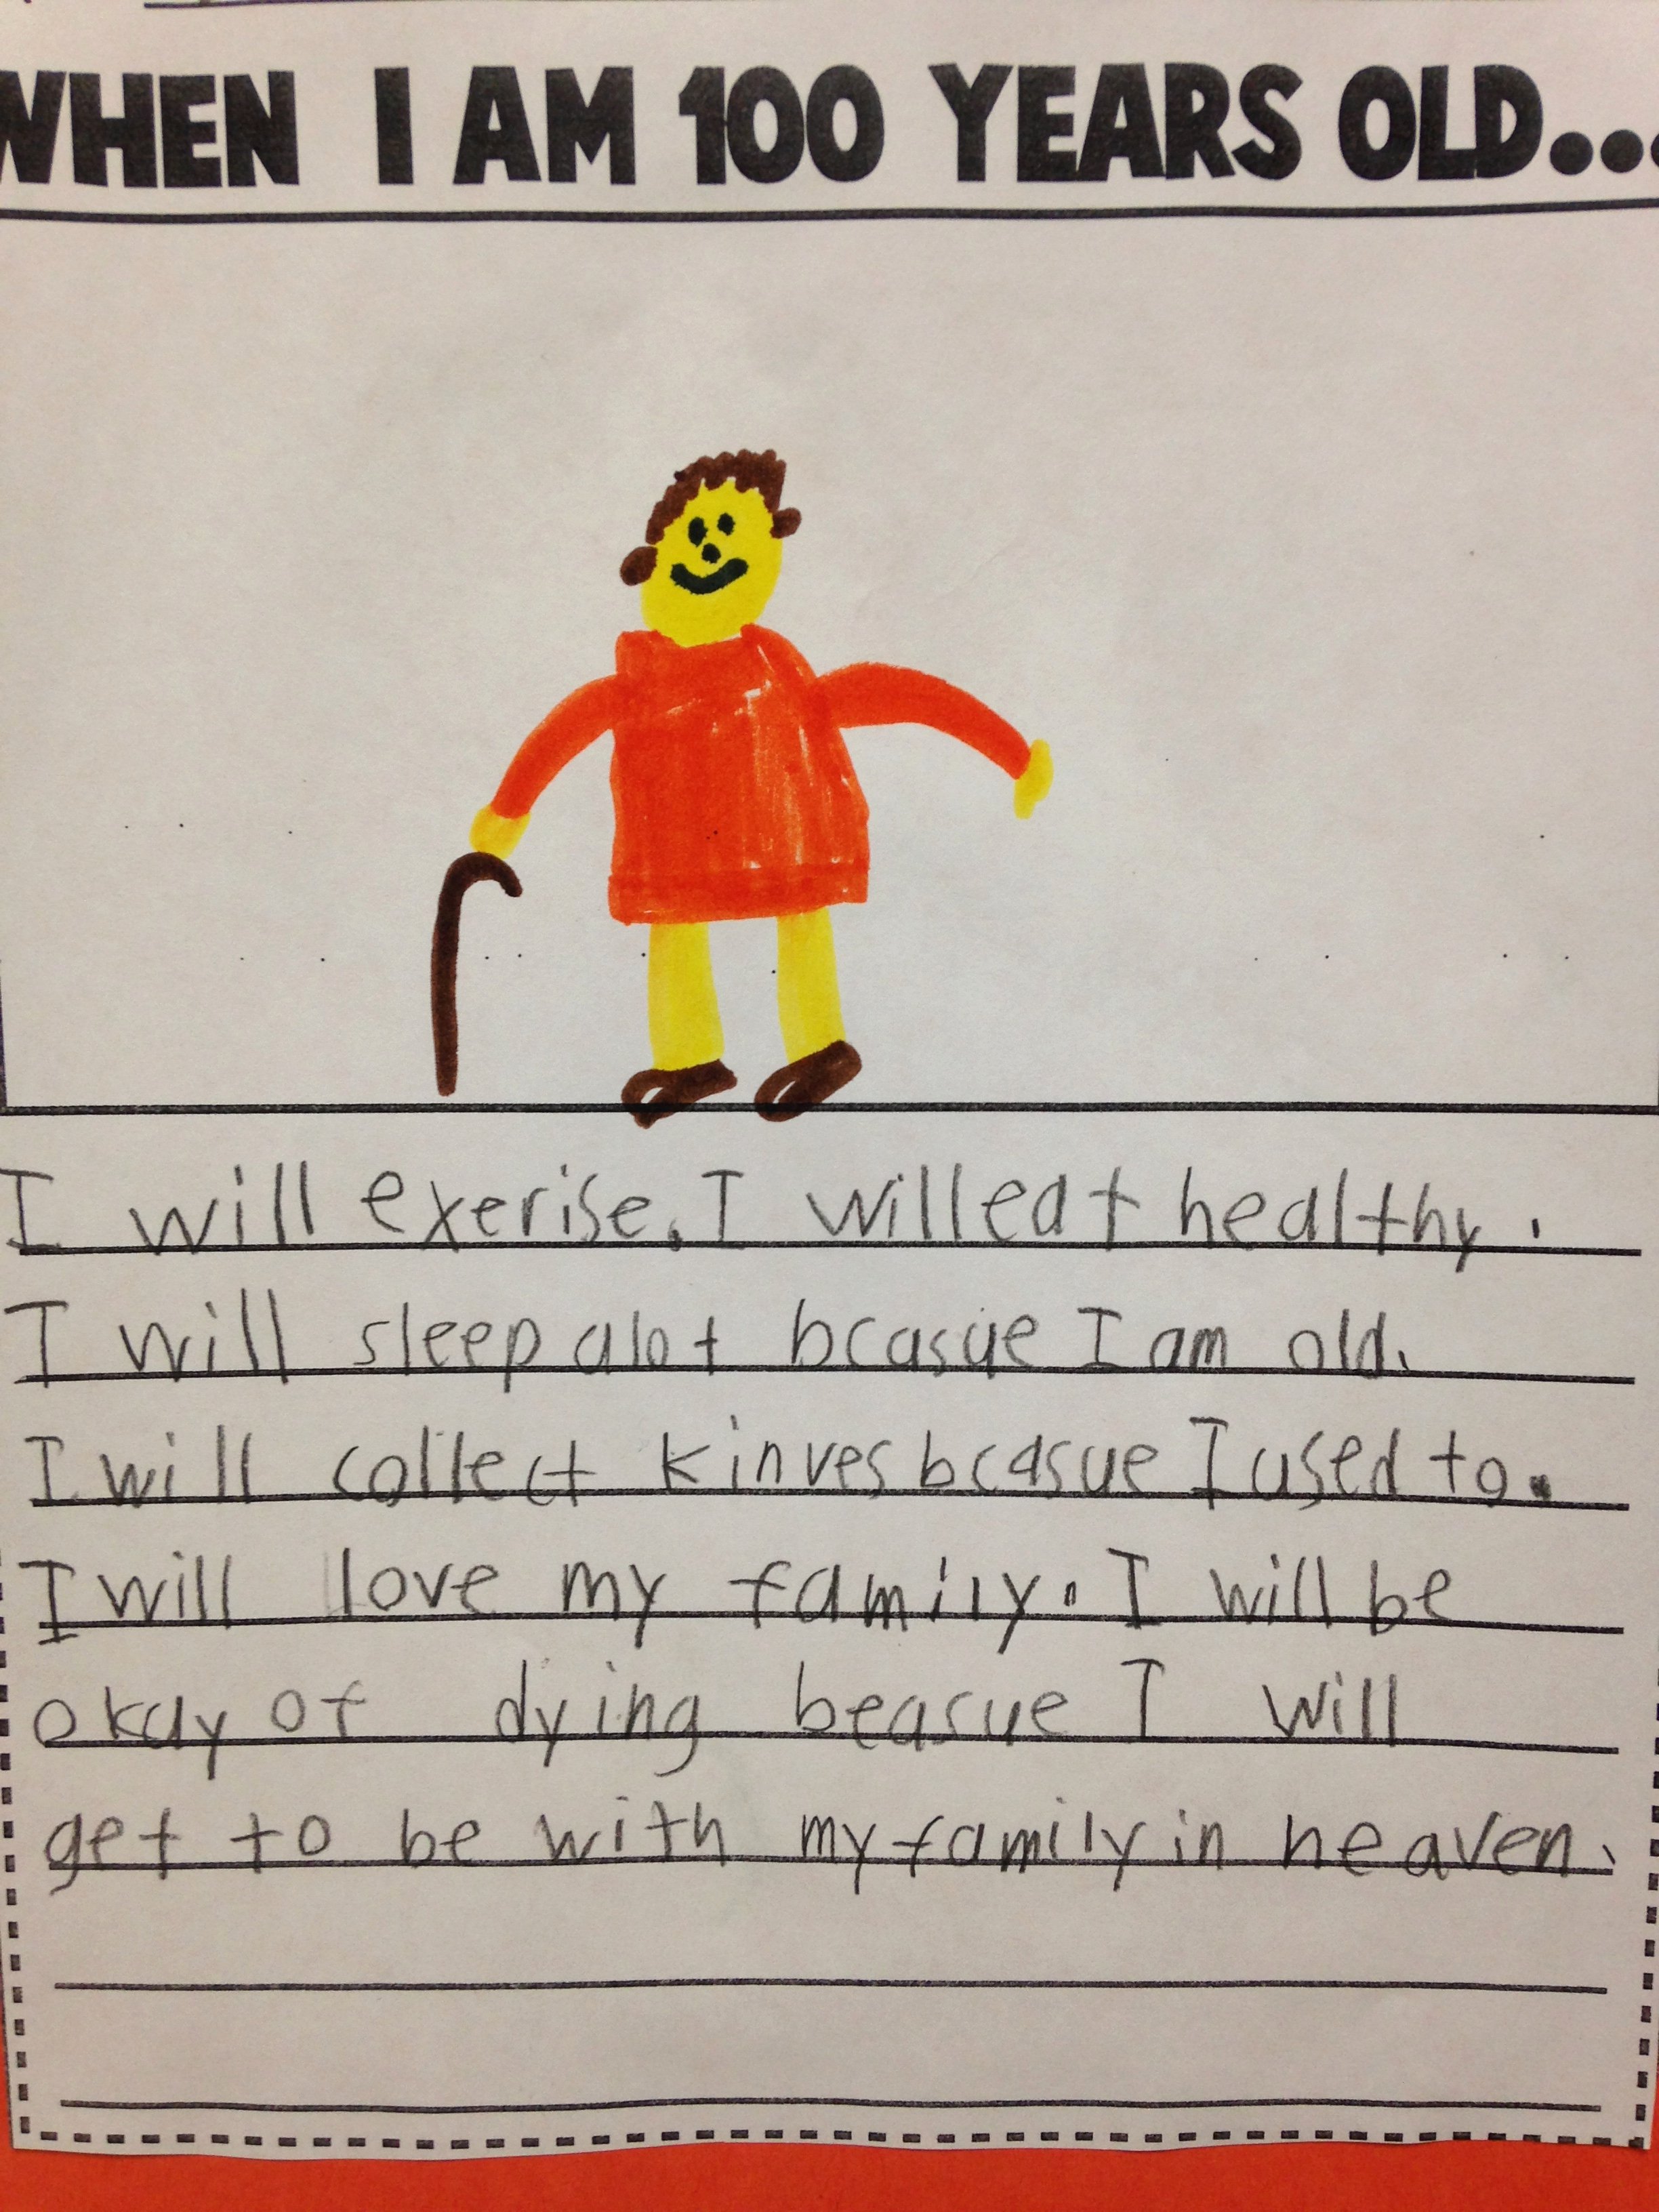 WHEN I AM 100 YEARS OLD...
I will exerise. I will eat healthy.
I will sleep alot bcasue I am old.
I will collect kinves bcasue I used to.
I will love my family. I will be
okay of dying beasue I will
get to be with my family in heaven.